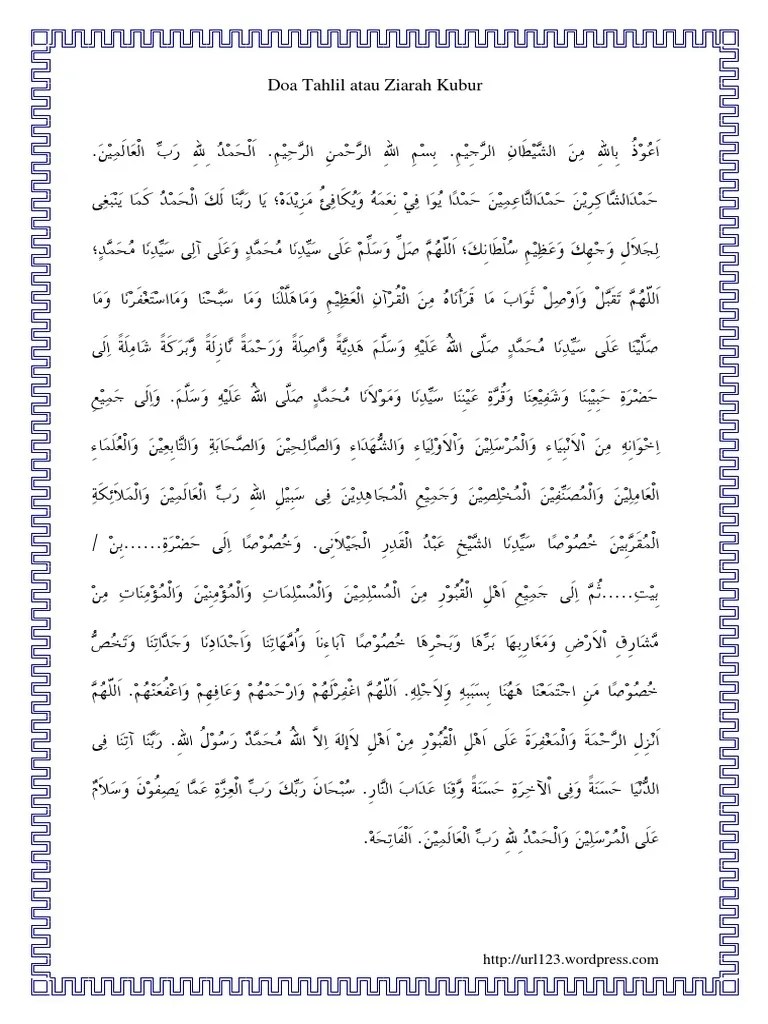 Doa Tahlil atau Ziarah Kubur
اَعُوْذُ بِاللهِ مِنَ الشَّيْطَانِ الرَّجِيْمِ. بِسْمِ اللهِ الرَّحْمنِ الرَّحِيْمِ. اَلْحَمْدُ لِلهِ رَبِّ الْعَالَمِيْنَ.
حَمْدَالشَّاكِرِيْنَ حَمْدَالنَّاعِمِيْنَ حَمْدًا يُوَا فِيْ نِعَمَهُ وَيُكَافِئُ مَزِيْدَهْ؛ يَا رَبَّنَا لَكَ الْحَمْدُ كَمَا يَنْبَغِى
لِجَلاَلِ وَجْهِكَ وَعَظِيْمِ سُلْطَانِكَ؛ اَللّهُمَّ صَلِّ وَسَلِّمْ عَلَى سَيِّدِنَا مُحَمَّدٍ وَعَلَى آلِى سَيِّدِنَا مُحَمَّدٍ؛
اَللّهُمَّ تَقَبَّلْ وَاَوْصِلْ ثَوَابَ مَا قَرَأْنَاهُ مِنَ الْقُرْآنِ الْعَظِيْمِ وَمَاهَلَّلْنَا وَمَا سَبَّحْنَا وَمَااسْتَغْفَرْنَا وَمَا
صَلَّيْنَا عَلَى سَيِّدِنَا مُحَمَّدٍ صَلَّى اللهُ عَلَيْهِ وَسَلَّمَ هَدِيَّةً وَّاصِلَةً وَرَحْمَةً نَّازِلَةً وَّبَرَكَةً شَامِلَةً اِلَى
حَضْرَةِ حَبِيْبِنَا وَشَفِيْعِنَا وَقُرَّةِ عَيْنِنَا سَيِّدِنَا وَمَوْلاَنَا مُحَمَّدٍ صَلَّى اللهُ عَلَيْهِ وَسَلَّمَ. وَاِلَى جَمِيْعِ
اِخْوَانِهِ مِنَ اْلاَنْبِيَاءِ وَالْمُرْسَلِيْنَ وَاْلاَوْلِيَاءِ وَالشُّهَدَاءِ وَالصَّالِحِيْنَ وَالصَّحَابَةِ وَالتَّابِعِيْنَ وَالْعُلَمَاءِ
الْعَامِلِيْنَ وَالْمُصَنِّفِيْنَ الْمُخْلِصِيْنَ وَجَمِيْعِ الْمُجَاهِدِيْنَ فِى سَبِيْلِ اللهِ رَبِّ الْعَالَمِيْنَ وَالْمَلاَئِكَةِ
الْمُقَرَّبِيْنَ خُصُوْصًا سَيِّدِنَا الشَّيْخِ عَبْدُ الْقَدِرِ الْجَيْلاَنِى. وَخُصُوْصًا اِلَى حَضْرَةِ......بِنْ /
بِيْتِ.....ثُمَّ اِلَى جَمِيْعِ اَهْلِ الْقُبُوْرِ مِنَ الْمُسْلِمِيْنَ وَالْمُسْلِمَاتِ وَالْمُؤْمِنِيْنَ وَالْمُؤْمِنَاتِ مِنْ
مَّشَارِقِ اْلاَرْضِ وَمَغَارِبِهَا بَرِّهَا وَبَحْرِهَا خُصُوْصًا آبَاءِناَ وَاُمَّهَاتِنَا وَاَجْدَادِنَا وَجَدَّاتِنَا وَنَخُصُّ
خُصُوْصًا مَنِ اجْتَمَعْنَا هَهُنَا بِسَبَبِهِ وَلِاَجْلِهِ. اَللّهُمَّ اغْفِرْلَهُمْ وَارْحَمْهُمْ وَعَافِهِمْ وَاعْفُعَنْهُمْ. اَللّهُمَّ
اَنْزِلِ الرَّحْمَةَ وَالْمَغْفِرَةَ عَلَى اَهْلِ الْقُبُوْرِ مِنْ اَهْلِ لاَإِلهَ اِلاَّ اللهُ مُحَمَّدٌ رَسُوْلُ اللهِ. رَبَّنَا آتِنَا فِى
الدُّنْيَا حَسَنَةً وَفِى اْلآخِرَةِ حَسَنَةً وَّقِنَا عَذَابَ النَّارِ. سُبْحَانَ رَبِّكَ رَبِّ الْعِزَّةِ عَمَّا يَصِفُوْنَ وَسَلاَمٌ
عَلَى الْمُرْسَلِيْنَ وَالْحَمْدُ لِلهِ رَبِّ الْعَالَمِيْنَ. اَلْفَاتِحَهْ.
http://url123.wordpress.com